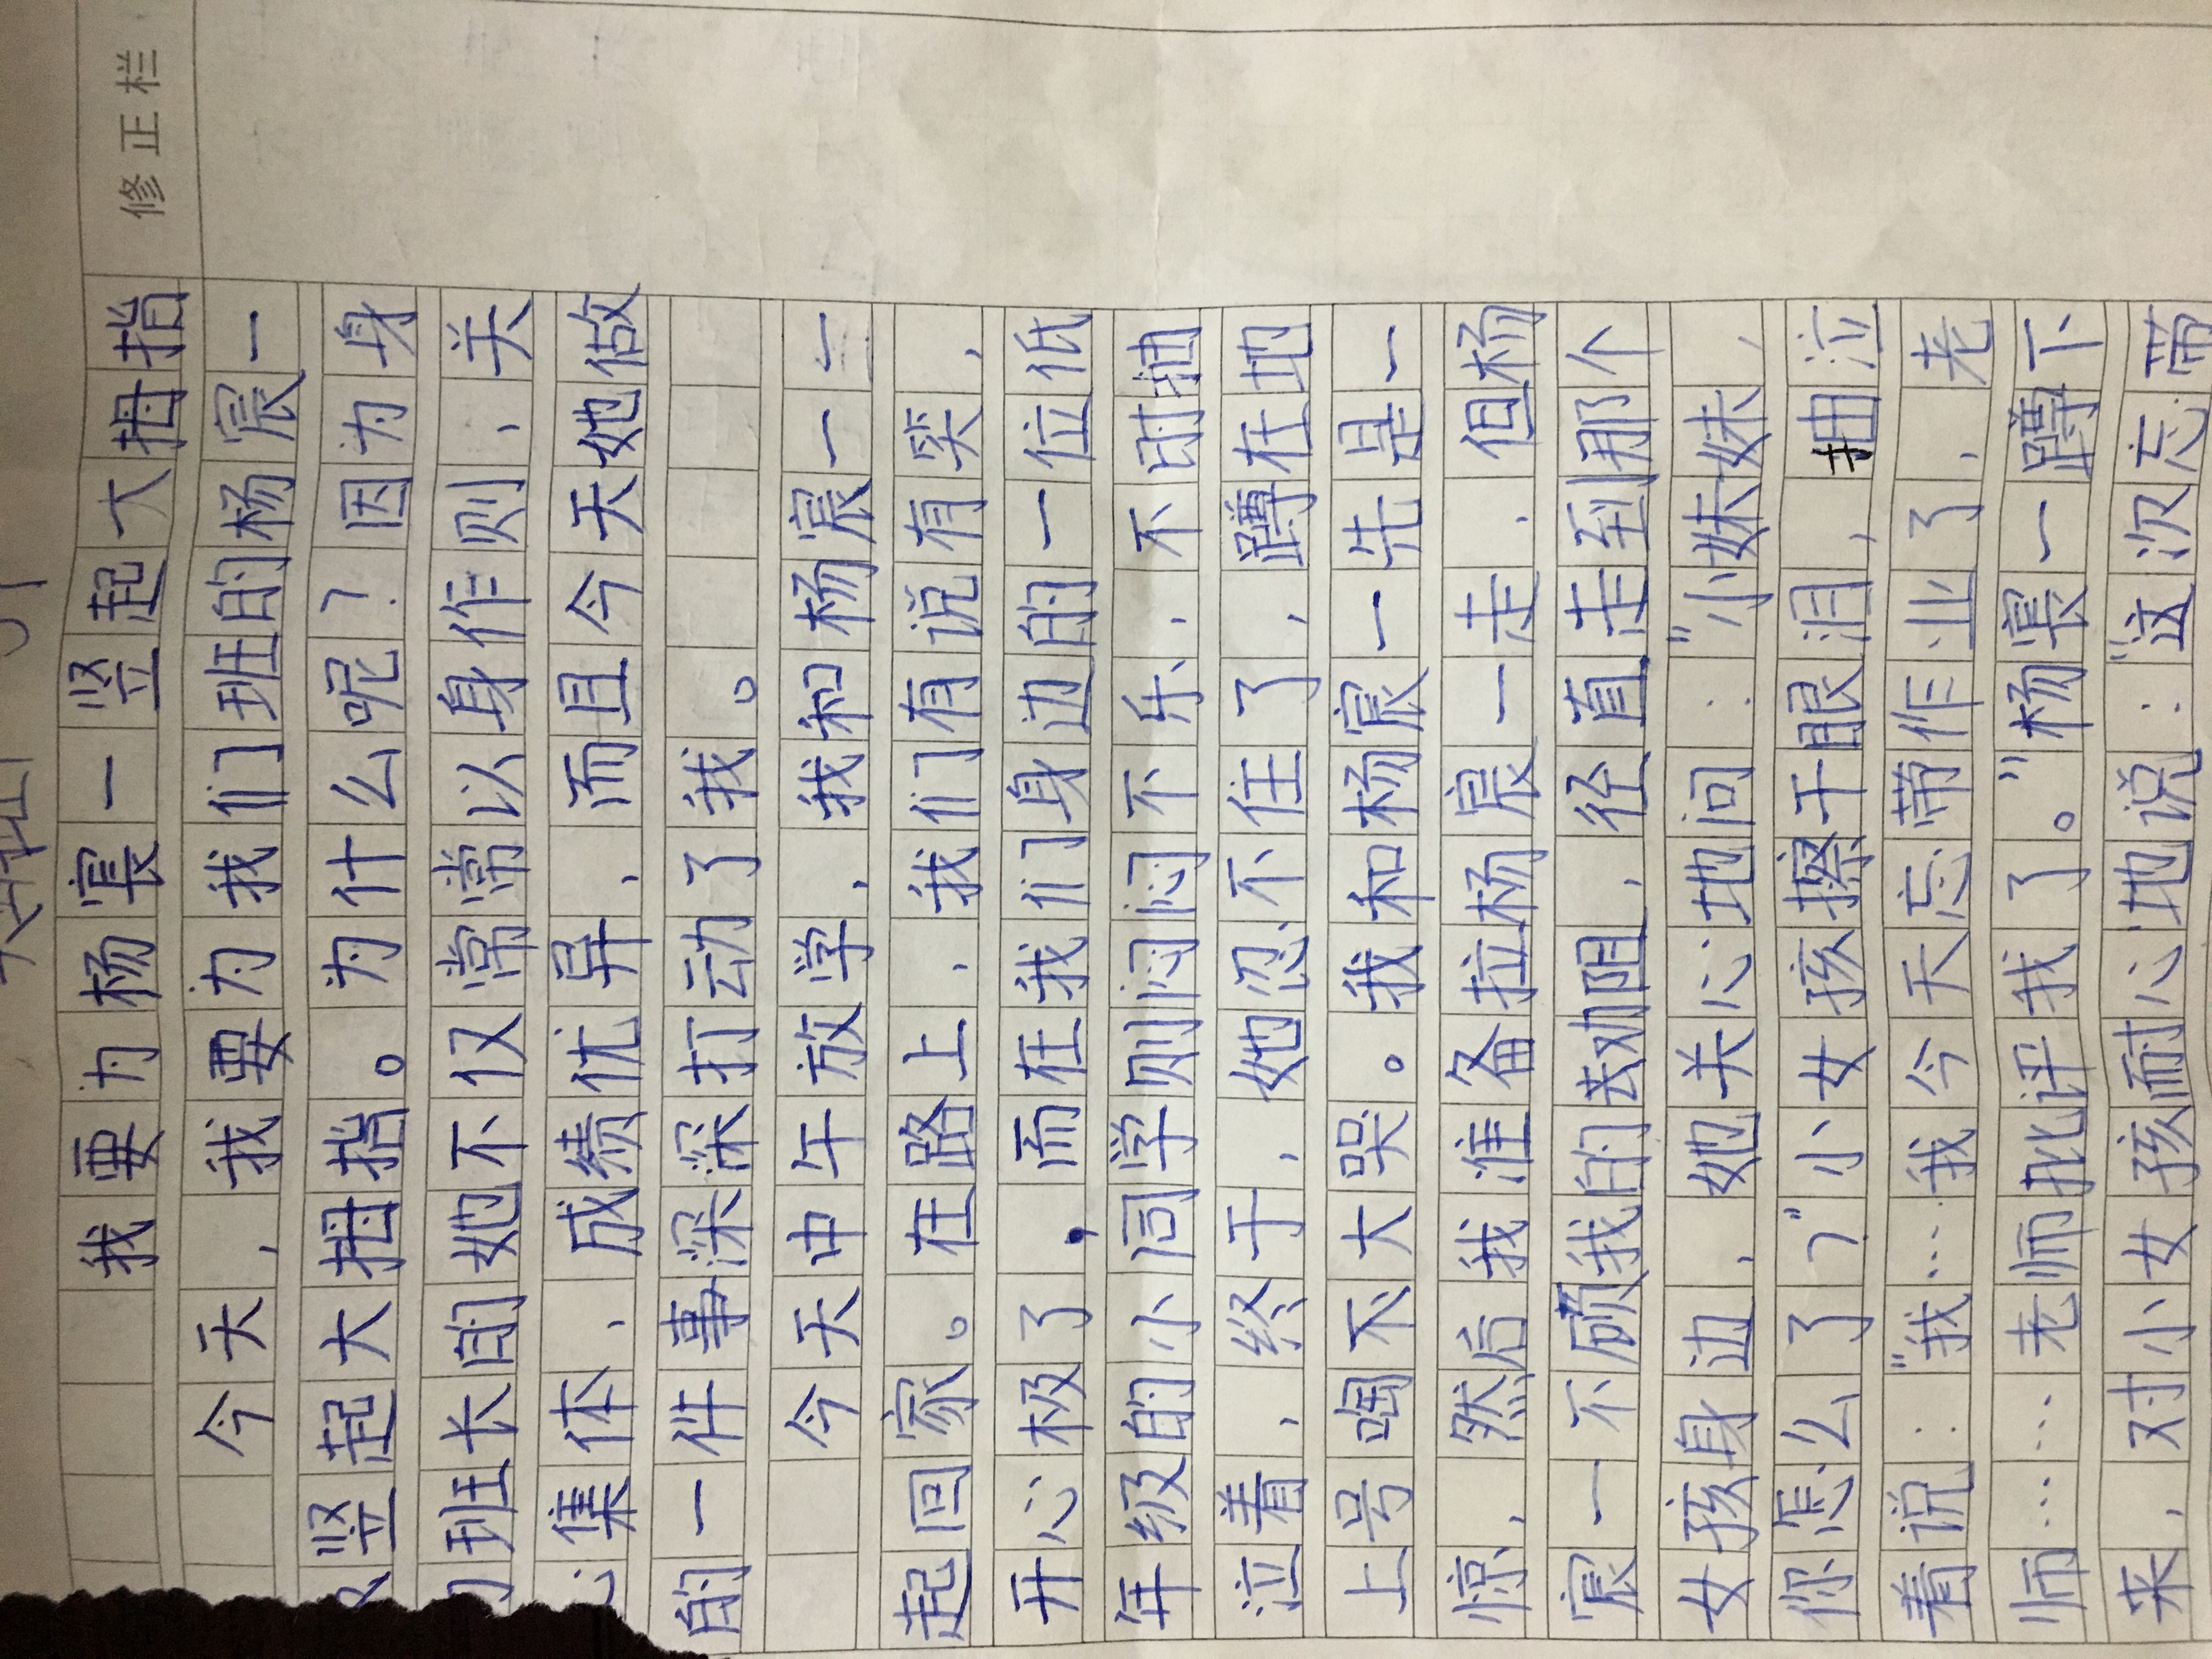 修正栏
我要为杨宸一竖起大拇指
今天，我要为我们班的杨宸一
竖起大拇指。为什么呢？因为身
为班长的她不仅常常以身作则，关
心集体，成绩优异，而且今天她做
的一件事深深打动了我。
今天中午放学，我和杨宸一一
起回家。在路上，我们有说有笑，
开心极了，而在我们身边的一位低
年级的小同学则闷闷不乐，不时抽
泣着，终于，她忍不住了，蹲在地
上号啕大哭。我和杨宸一先是一
惊，然后我准备拉杨宸一走，但杨
宸一不顾我的劝阻，径直走到那个
女孩身边，她关心地问："小妹妹，
你怎么了？"小女孩擦干眼泪，抽泣
着说："我……我今天忘带作业了，老
师……老师批评我了。"杨宸一蹲下
来，对小女孩耐心地说："这次忘带